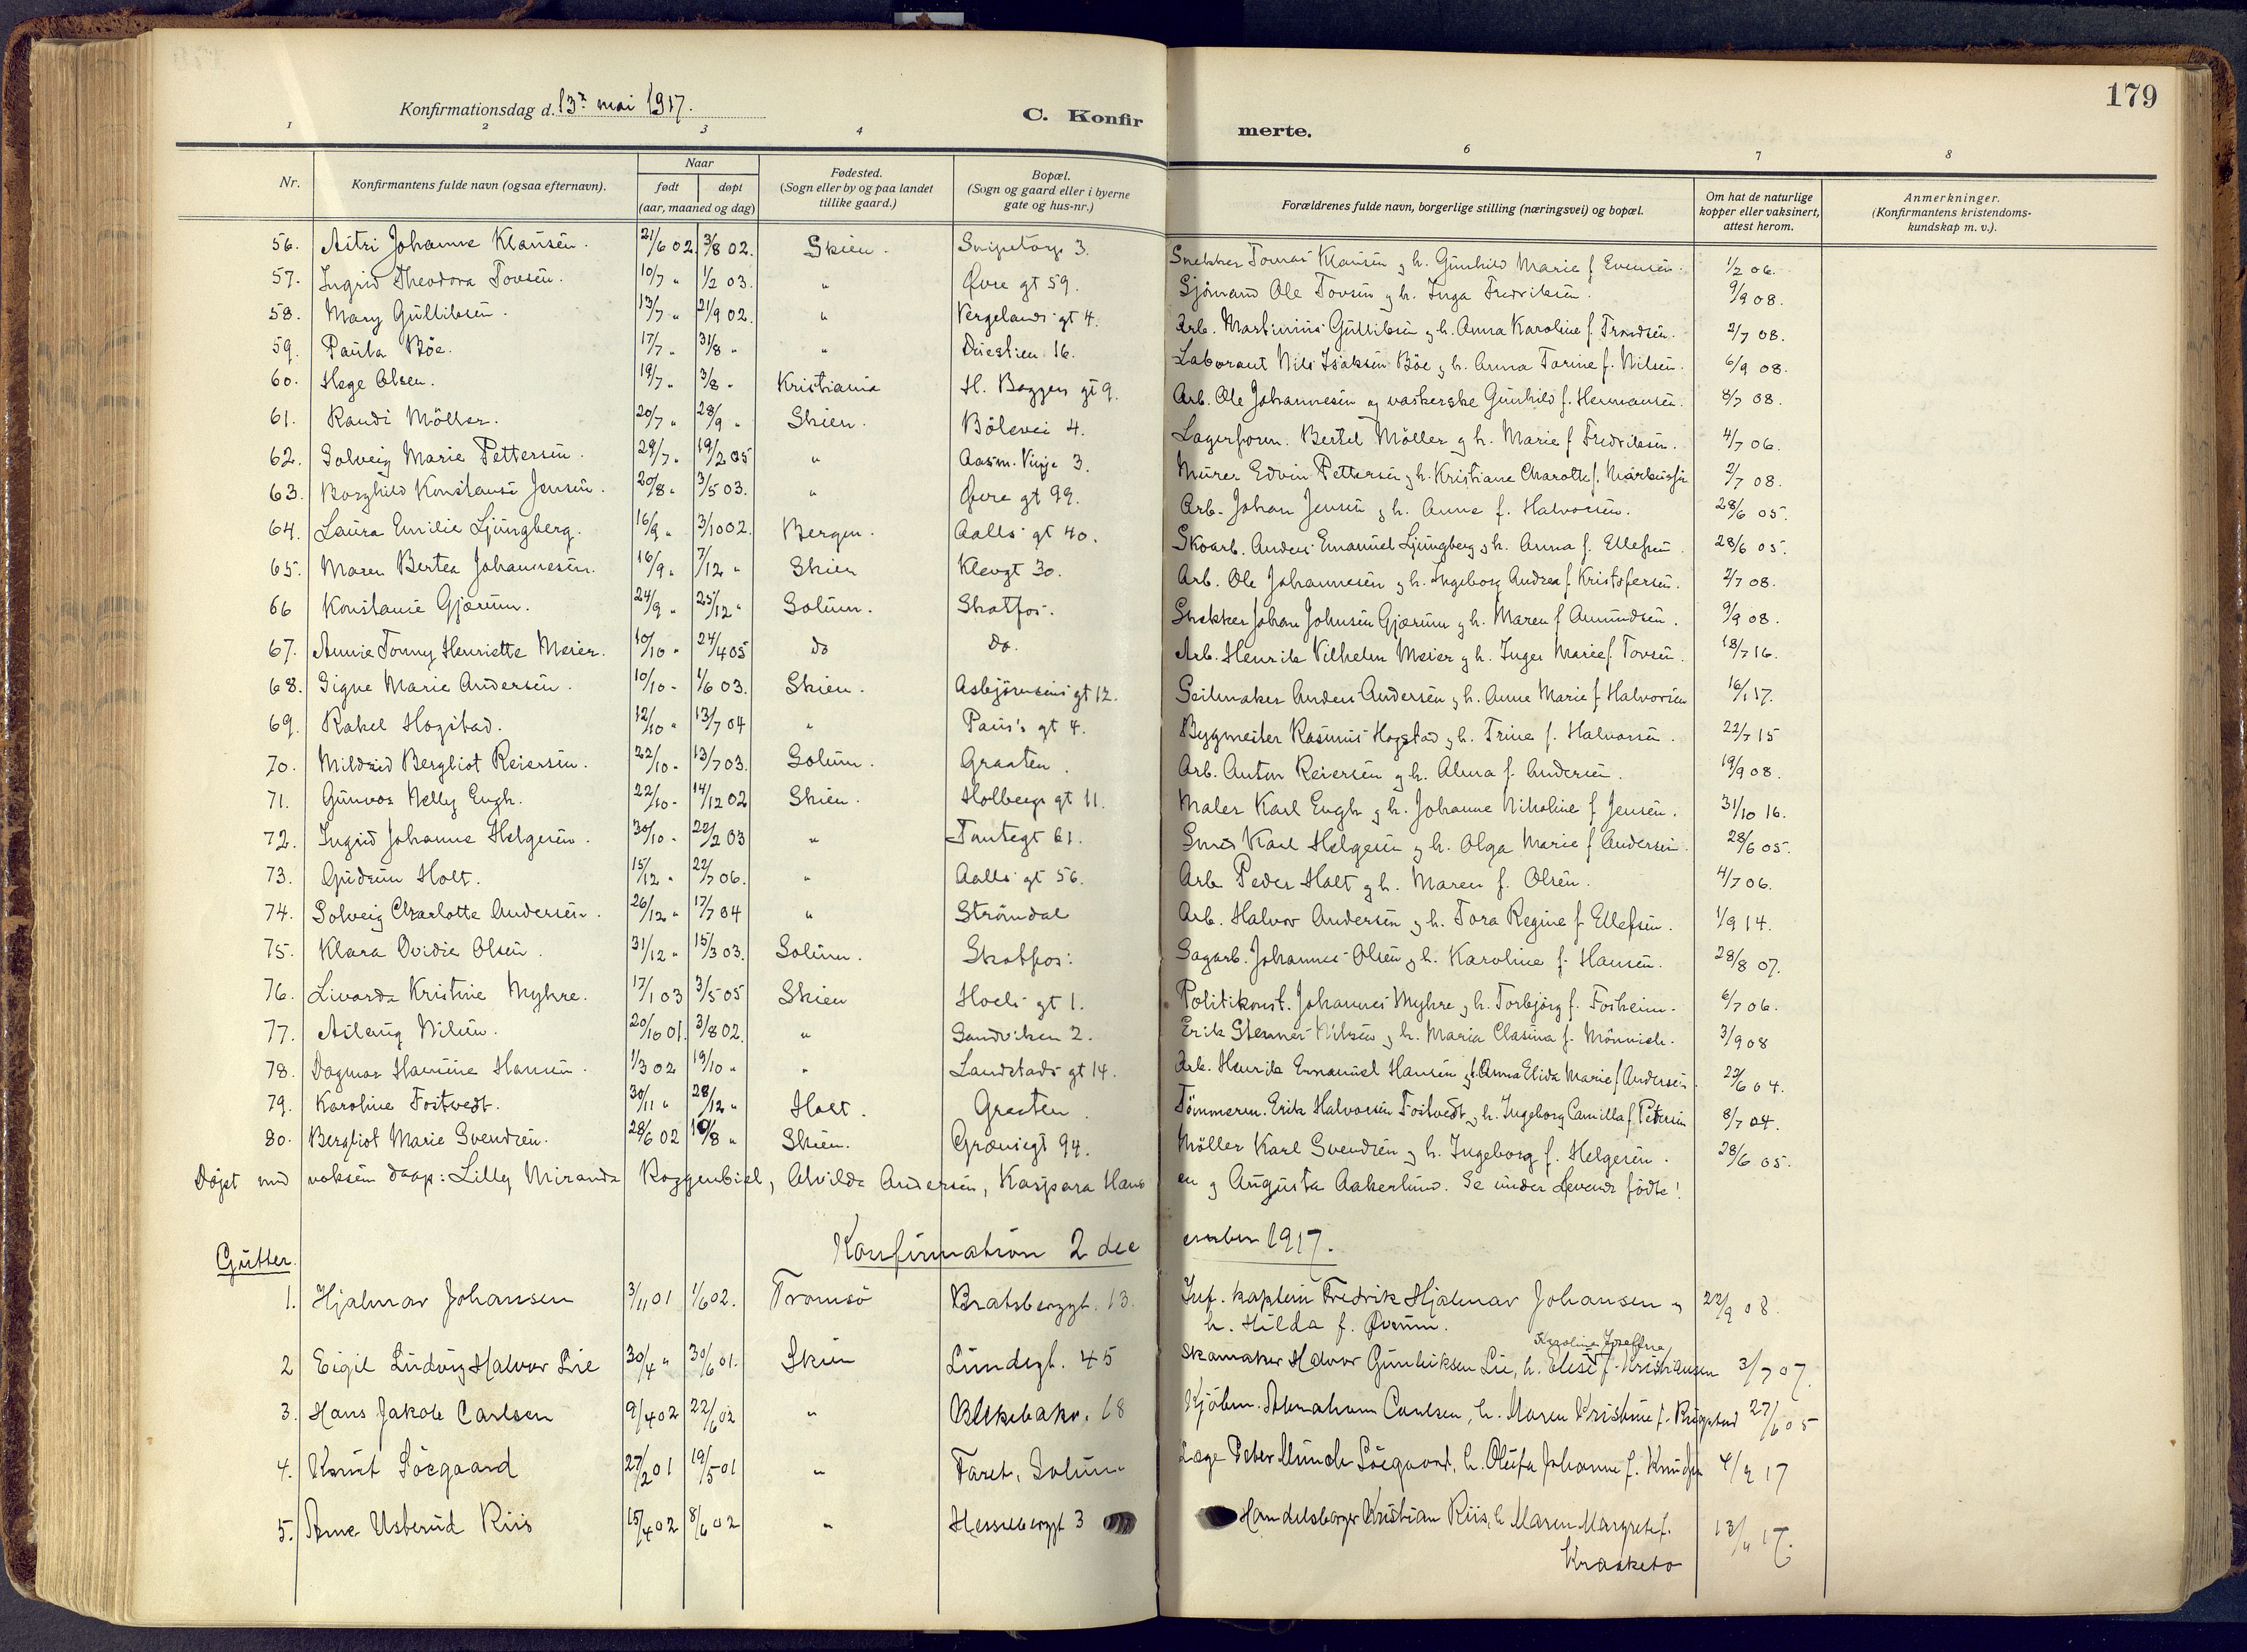 179
Konfirmationsdag d. 13de mai 1917. C. Konfirmerte.
1 2 3 4 6 7 8
Nr. Konfirmantens fulde navn (ogsaa efternavn). Naar født døpt (aar, maaned og dag) Fødested. (Sogn eller by og paa landet tillike gaard.) Bopæl. (Sogn og gaard eller i byerne gate og hus-nr.) Forældrenes fulde navn, borgerlige stilling (næringsvei) og bopæl. Om hat de naturlige kopper eller vaksinert, attest herom. Anmerkninger. (Konfirmantens kristendomskundskap m. v.).
56. Astri Johanne Klausen. 21/6 02. 3/8 02. Skien. Snipetorp 3. Snekker Tomas Klausen og h. Gunhild Marie f. Evensen. 1/2 06.
57. Ingrid Theodora Tovsen. 10/7 " 1/2 03. " Øvre gt 59. Sjømand Ole Tovsen og h. Inga Fredriksen. 9/9 08.
58. Mary Gulliksen. 13/7 " 21/9 02. " Vergelands gt 4. Arb. Martinius Gulliksen og h. Anna Karoline f. Trondsen. 2/7 08.
59. Paula Böe. 17/7 " 31/8 " " Duestien 16. Laborant Nils Isaksen Böe og h. Anna Tarine f. Nilsen. 6/9 08.
60. Hege Olsen. 19/7 " 3/8 " Kristiania H. Bagges gt 9. Arb. Ole Johannesen og vaskerske Gunhild f. Hermansen. 8/7 08.
61. Randi Möller. 20/7 " 28/9 " Skien. Bölevei 4. Lagerform. Bertel Möller og h. Marie f. Fredriksen. 4/7 06.
62. Solveig Marie Pettersen. 29/7 " 19/2 05 " Aasm. Vinje 3. Murer Edvin Pettersen og h. Kristiane Charotte f. 2/7 08.
63. Borghild Konstanse Jensen. 20/8 " 3/5 03. " Øvre gt 99. Arb. Johan Jensen og h. Anne f. Halvorsen. 28/6 05.
64. Laura Emilie Ljungberg. 16/9 " 3/10 02. Bergen. Aalls gt 40. Skoarb. Anders Emanuel Ljungberg og h. Anna f. Ellefsen. 28/6 05.
65. Maren Bertea Johannesen. 16/9 " 7/12 " Skien Klevgt 30. Arb. Ole Johannesen og h. Ingeborg Andrea f. Kristofersen. 2/7 08.
66 Konstanse Gjærum. 24/9 " 25/12 " Solum. Skotfos. Snekker Johan Johnsen Gjærum og h. Maren f. Amundsen. 9/9 08.
67. Annie Tonny Henriette Meier. 10/10 " 24/4 05 do do. Arb. Henrik Vilhelm Meier og h. Inger Marie f. Tovsen. 18/7 16.
68. Signe Marie Andersen. 10/10 " 1/6 03. Skien. Asbjörnsens gt 12. Seilmaker Anders Andersen og h. Anne Marie f. Halvorsen 16/1 17.
69. Rakel Hogstad. 12/10 " 13/7 04 " Paus's gt 4. Bygmester Rasmus Hogstad og h. Trine f. Halvorsen. 22/7 15
70. Mildred Bergliot Reiersen. 22/10 " 13/7 03. Solum. Graaten. Arb. Anton Reiersen og h. Alma f. Andersen. 19/9 08.
71. Gunvor Nelly Engh. 22/10 " 14/12 02 Skien. Holbergs gt 11. Maler Karl Engh og h. Johanne Nikoline f. Jensen. 31/10 16.
72. Ingrid Johanne Helgesen. 30/10 " 22/2 03 " Tontegt 61. Smed Karl Helgesen og h. Olga Marie f. Andersen. 28/6 05.
73. Gudrun Holt. 15/12 " 22/7 06. " Aalls gt 56. Arb. Peder Holt og h. Maren f. Olsen. 4/7 06.
74. Solveig Charlotte Andersen. 26/12 " 17/7 04 " Strömdal Arb. Halvor Andersen og h. Tora Regine f. Ellefsen. 1/9 14.
75. Klara Ovidie Olsen. 31/12 " 15/3 03. Solum. Skotfos. Sagarb. Johannes Olsen og h. Karoline f. Hansen. 28/8 07.
76. Livarda Kristine Myhre. 17/1 03 3/5 05 Skien Hoels gt 1. Politikonst. Johannes Myhre og h. Torbjörg f. Fosheim. 6/7 06.
77. Aslaug Nilsen. 20/10 01. 3/8 02. " Sandviken 2. Erik Nilsen og h. Maria Clasina f. Mönnich. 3/9 08
78. Dagmar Hansine Hansen. 1/3 02 19/10 " " Landstads gt 14. Arb. Henrik Emanuel Hansen og h. Anna Elida Marie f. Andersen. 22/6 04.
79. Karoline Fostvedt. 30/11 " 28/12 " Holt. Graaten. Tömmerm. Erik Halvorsen Fostvedt og h. Ingeborg Camilla f. Petersen 8/7 04.
80. Bergliot Marie Svendsen. 28/6 02 10/8 " Skien. Grönliegt 94. Möller Karl Svendsen og h. Ingeborg f. Helgesen. 28/6 05.
Döpt ved voksen daap: Lilly Miranda Roggenbiel, Alvilda Andersen, Kaspara Hansen og Augusta Aakerlund. Se under levende födte!
Konfirmation 2 december 1917.
Gutter.
1. Hjalmar Johansen 3/11 01 1/6 02. Tromsö Bratsberggt. 13. Inf. kaptein Fredrik Hjalmar Johansen og 22/9 08.
h. Hilda f. Øvrum.
Karoline Josefine
2 Eigil Ludvig Halvor Lie 30/4 " 30/6 01. Skien Lundegt. 45 Skomaker Halvor Gunleiksen Lie, h. Elise f. Kristiansen 3/7 07.
3. Hans Jakob Carlsen 9/4 02 22/6 02 " Blekebakv. 68 Kjöbm. Abraham Carlsen, h. Maren Kristine f. 27/6 05
4. Knut Löegaard 27/2 01 19/5 01 " Faret, Solum Læge Peter Munch Löegaard, h. Olufa Johanne f. Knudsen 4/9 17
5. Arne Usterud Riis 15/4 02 8/6 02 " Hesselberggt 3 Handelsborger Kristian Riis, h. Maren Margrete f. 13/11 17.
Kraakebo